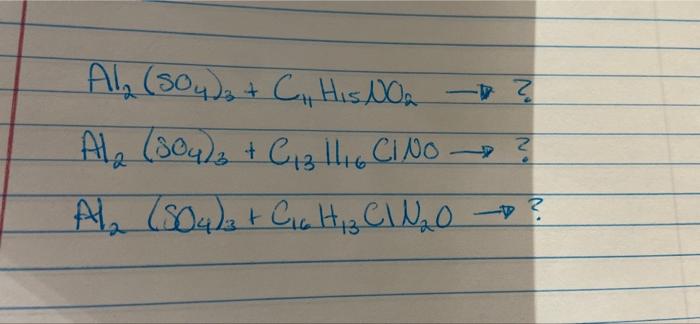 Al₂(SO₄)₃ + C₁₁H₁₅NO₂ → ?
Al₂(SO₄)₃ + C₁₃H₁₆ClNO → ?
Al₂(SO₄)₃ + C₁₆H₁₃ClN₂O → ?